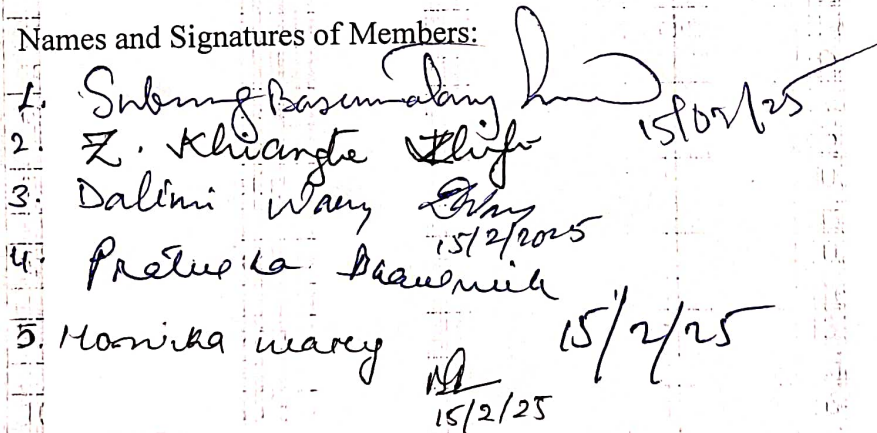 Names and Signatures of Members:
1. Subung Basumatary 15/02/25
2. Z. Khiangte
3. Dalimi Wary
15/2/2025
4.
5. Monika wary 15/2/25
15/2/25